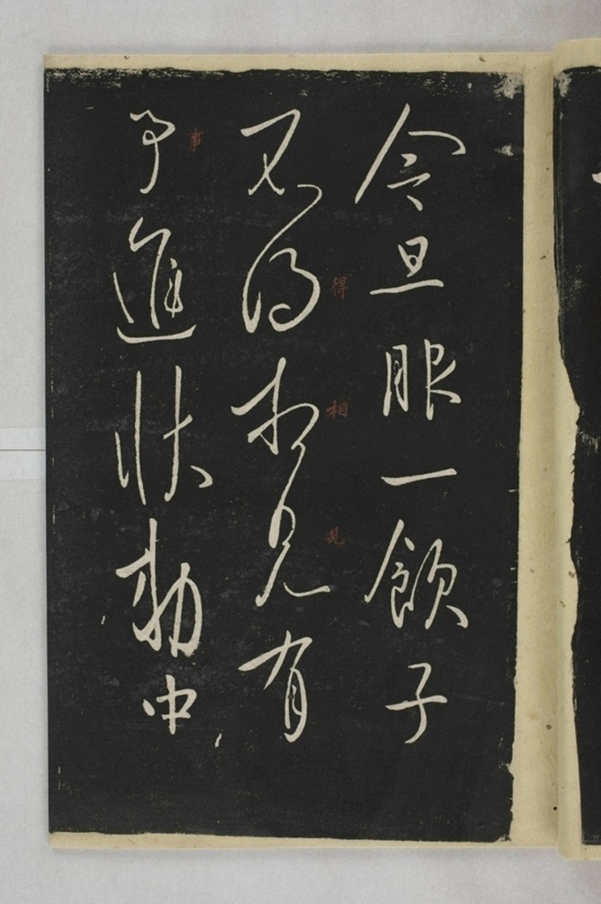 今旦服一飲子
得
相
見
不得相見有
事
事進狀勒中